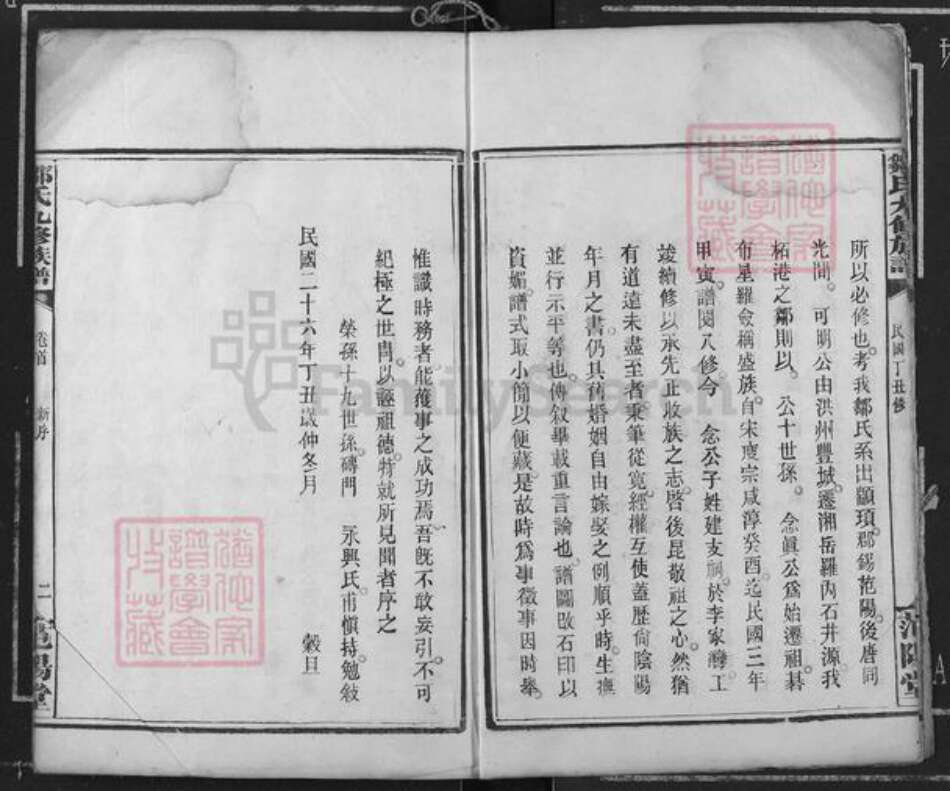 鄒氏九修族譜
民國丁丑修
范陽堂
所以必修也考我鄒氏系出顓頊郡錫范陽後唐同
光間 可明公由洪州豐城遷湘岳羅內石井源我
柘港之鄒則以 公十世孫 念眞公爲始遷祖碁
布星羅僉稱盛族自宋度宗咸淳癸酉迄民國三年
甲寅譜閱八修今 念公子姓建支祠於李家灣工
竣續修以承先止收族之志啓後昆敬祖之心然猶
有道遠未盡至者秉筆從寬經權互使蓋歷尙陰陽
年月之書仍其舊婚姻自由嫁娶之例順乎時生撫
並行示平等也傳叙畢載重言論也譜圖改石印以
資媚譜式取小簡以便藏是故時爲事徵事因時舉
惟識時務者能獲事之成功焉吾旣不敢妄引不可
紀極之世胄以誣祖德特就所見聞者序之
榮孫十九世孫磚門 永興氏甫愼持勉敍
民國二十六年丁丑歲仲冬月 穀旦
鄒氏九修族譜
卷首 新序
二
范陽堂